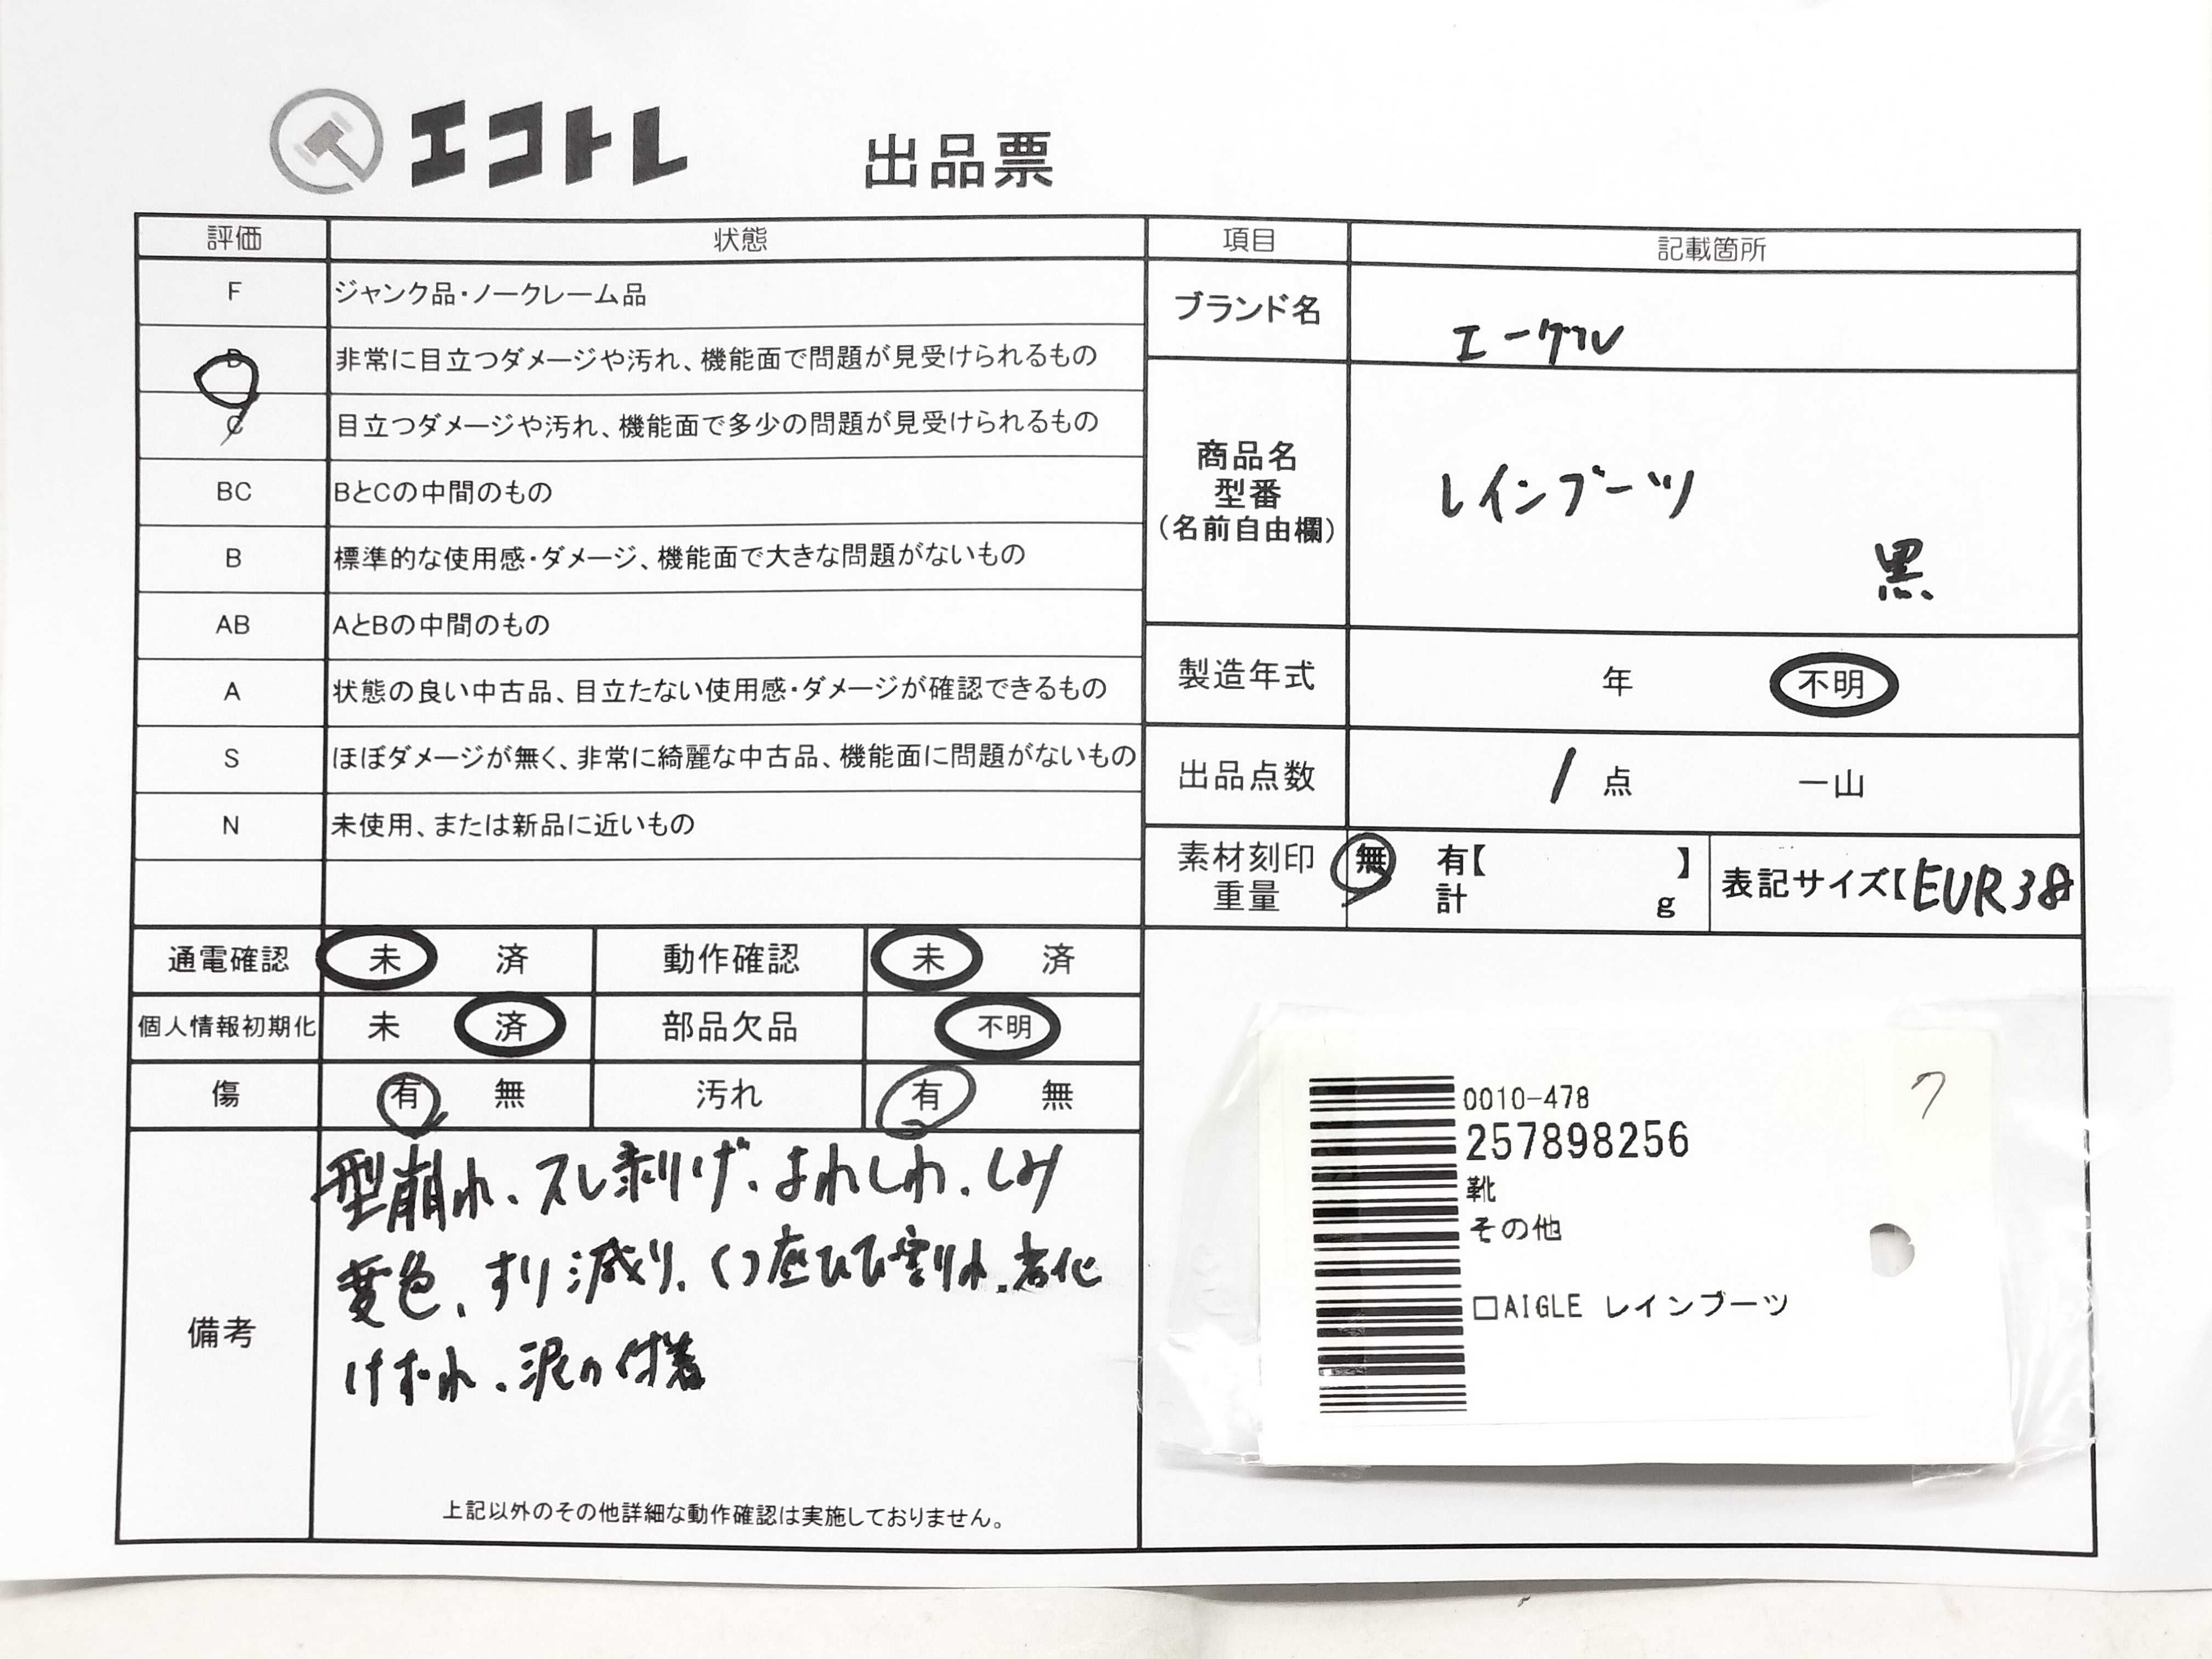 エコトレ 出品票
評価 状態
F ジャンク品・ノークレーム品
D 非常に目立つダメージや汚れ、機能面で問題が見受けられるもの
C 目立つダメージや汚れ、機能面で多少の問題が見受けられるもの
BC BとCの中間のもの
B 標準的な使用感・ダメージ、機能面で大きな問題がないもの
AB AとBの中間のもの
A 状態の良い中古品、目立たない使用感・ダメージが確認できるもの
S ほぼダメージが無く、非常に綺麗な中古品、機能面に問題がないもの
N 未使用、または新品に近いもの
通電確認 未 済 動作確認 未 済
個人情報初期化 未 済 部品欠品 不明
傷 有 無 汚れ 有 無
備考
型崩れ、スレ剥げ、よれしわ、しみ
変色、すり減り、くつ底ひび割れ、劣化
けずれ、泥の付着
上記以外のその他詳細な動作確認は実施しておりません。
項目 記載箇所
ブランド名 エーグル
商品名
型番
(名前自由欄)
レインブーツ
黒
製造年式 年 不明
出品点数 1 点 一山
素材刻印 無 有【 】
重量 計 g
表記サイズ【EUR38
0010-478
257898256
靴
その他
□AIGLE レインブーツ